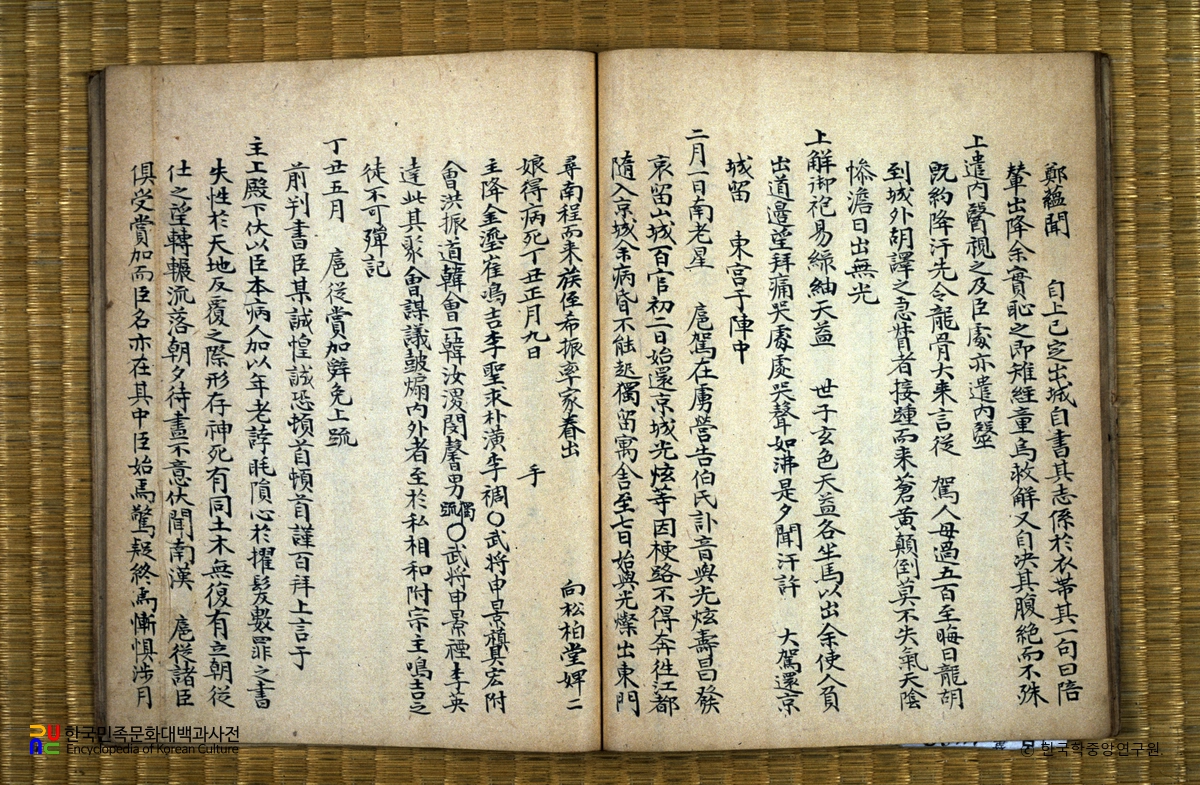 鄭蘊聞 自上已定出城自書其志係於衣帶其一句曰陪
輦出降余實恥之即雉經童烏救解又自决其腹絶而不殊
上遣内醫視之及臣處亦遣内醫
旣約降汗先令龍骨大来言從 駕人毋過五百至晦日龍胡
到城外胡譯之急督者接踵而来蒼黃顛倒莫不失氣天陰
慘澹日出無光
上解御袍易綿紬天益 世子玄色天益各坐馬以出余使人負
出道邊望拜痛哭處處哭聲如沸是夕聞汗許 大駕還京
城留 東宮于陣中
二月一日南老星 扈駕在虜營告伯氏訃音與光炫壽昌發
哀留山城百官初二日始還京城光炫等因梗路不得奔往江都
隨入京城余病昏不能起獨留寓舍至七日始與光燦出東門
尋南程而来族侄希振率家眷出 向松柏堂婢二
娘得病死丁丑正月九日 手
主降金鎏崔鳴吉李聖求朴潢李裯○武將申景禛具宏附
會洪振道韓會一韓汝溭閔馨男獨疏○武將申景禋李英
達此其聚會謀議鼓煽内外者至於私相和附宗主鳴吉之
徒不可殫記
丁丑五月 扈從賞加辭免上疏
前判書臣某誠惶誠恐頓首頓首謹百拜上言于
主上殿下伏以臣本病人加以年老誖眊隕心於擢髮數罪之書
失性於天地反覆之際形存神死有同土木無復有立朝從
仕之望轉輾流落朝夕待盡不意伏聞南漢 扈從諸臣
俱受賞加而臣名亦在其中臣始焉驚疑終焉慚惧涉月
한국민족문화대백과사전
Encyclopedia of Korean Culture
© 한국학중앙연구원